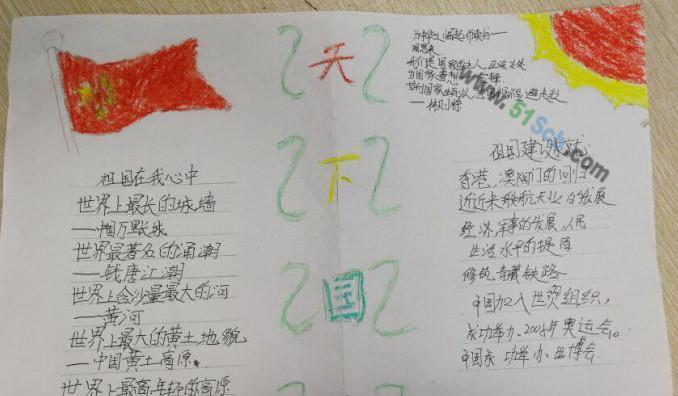 祖国在我心中
世界上最长的城墙
——中国万里长城
世界最著名的涌潮
——钱唐江潮
世界上含沙量最大的河
——黄河
世界上最大的黄土地貌
——中国黄土高原。
世界上最高年轻的高原
天
下
国
为中华之崛起而读书——
周恩来
——林则徐
www.51Scb.com
祖国建设
香港,澳门的回归
近近来我航天业的发展
经济军事的发展,人民
生活水平的提高
修筑青藏铁路
中国加入世贸组织,
成功举办2008年奥运会。
中国成功举办世博会